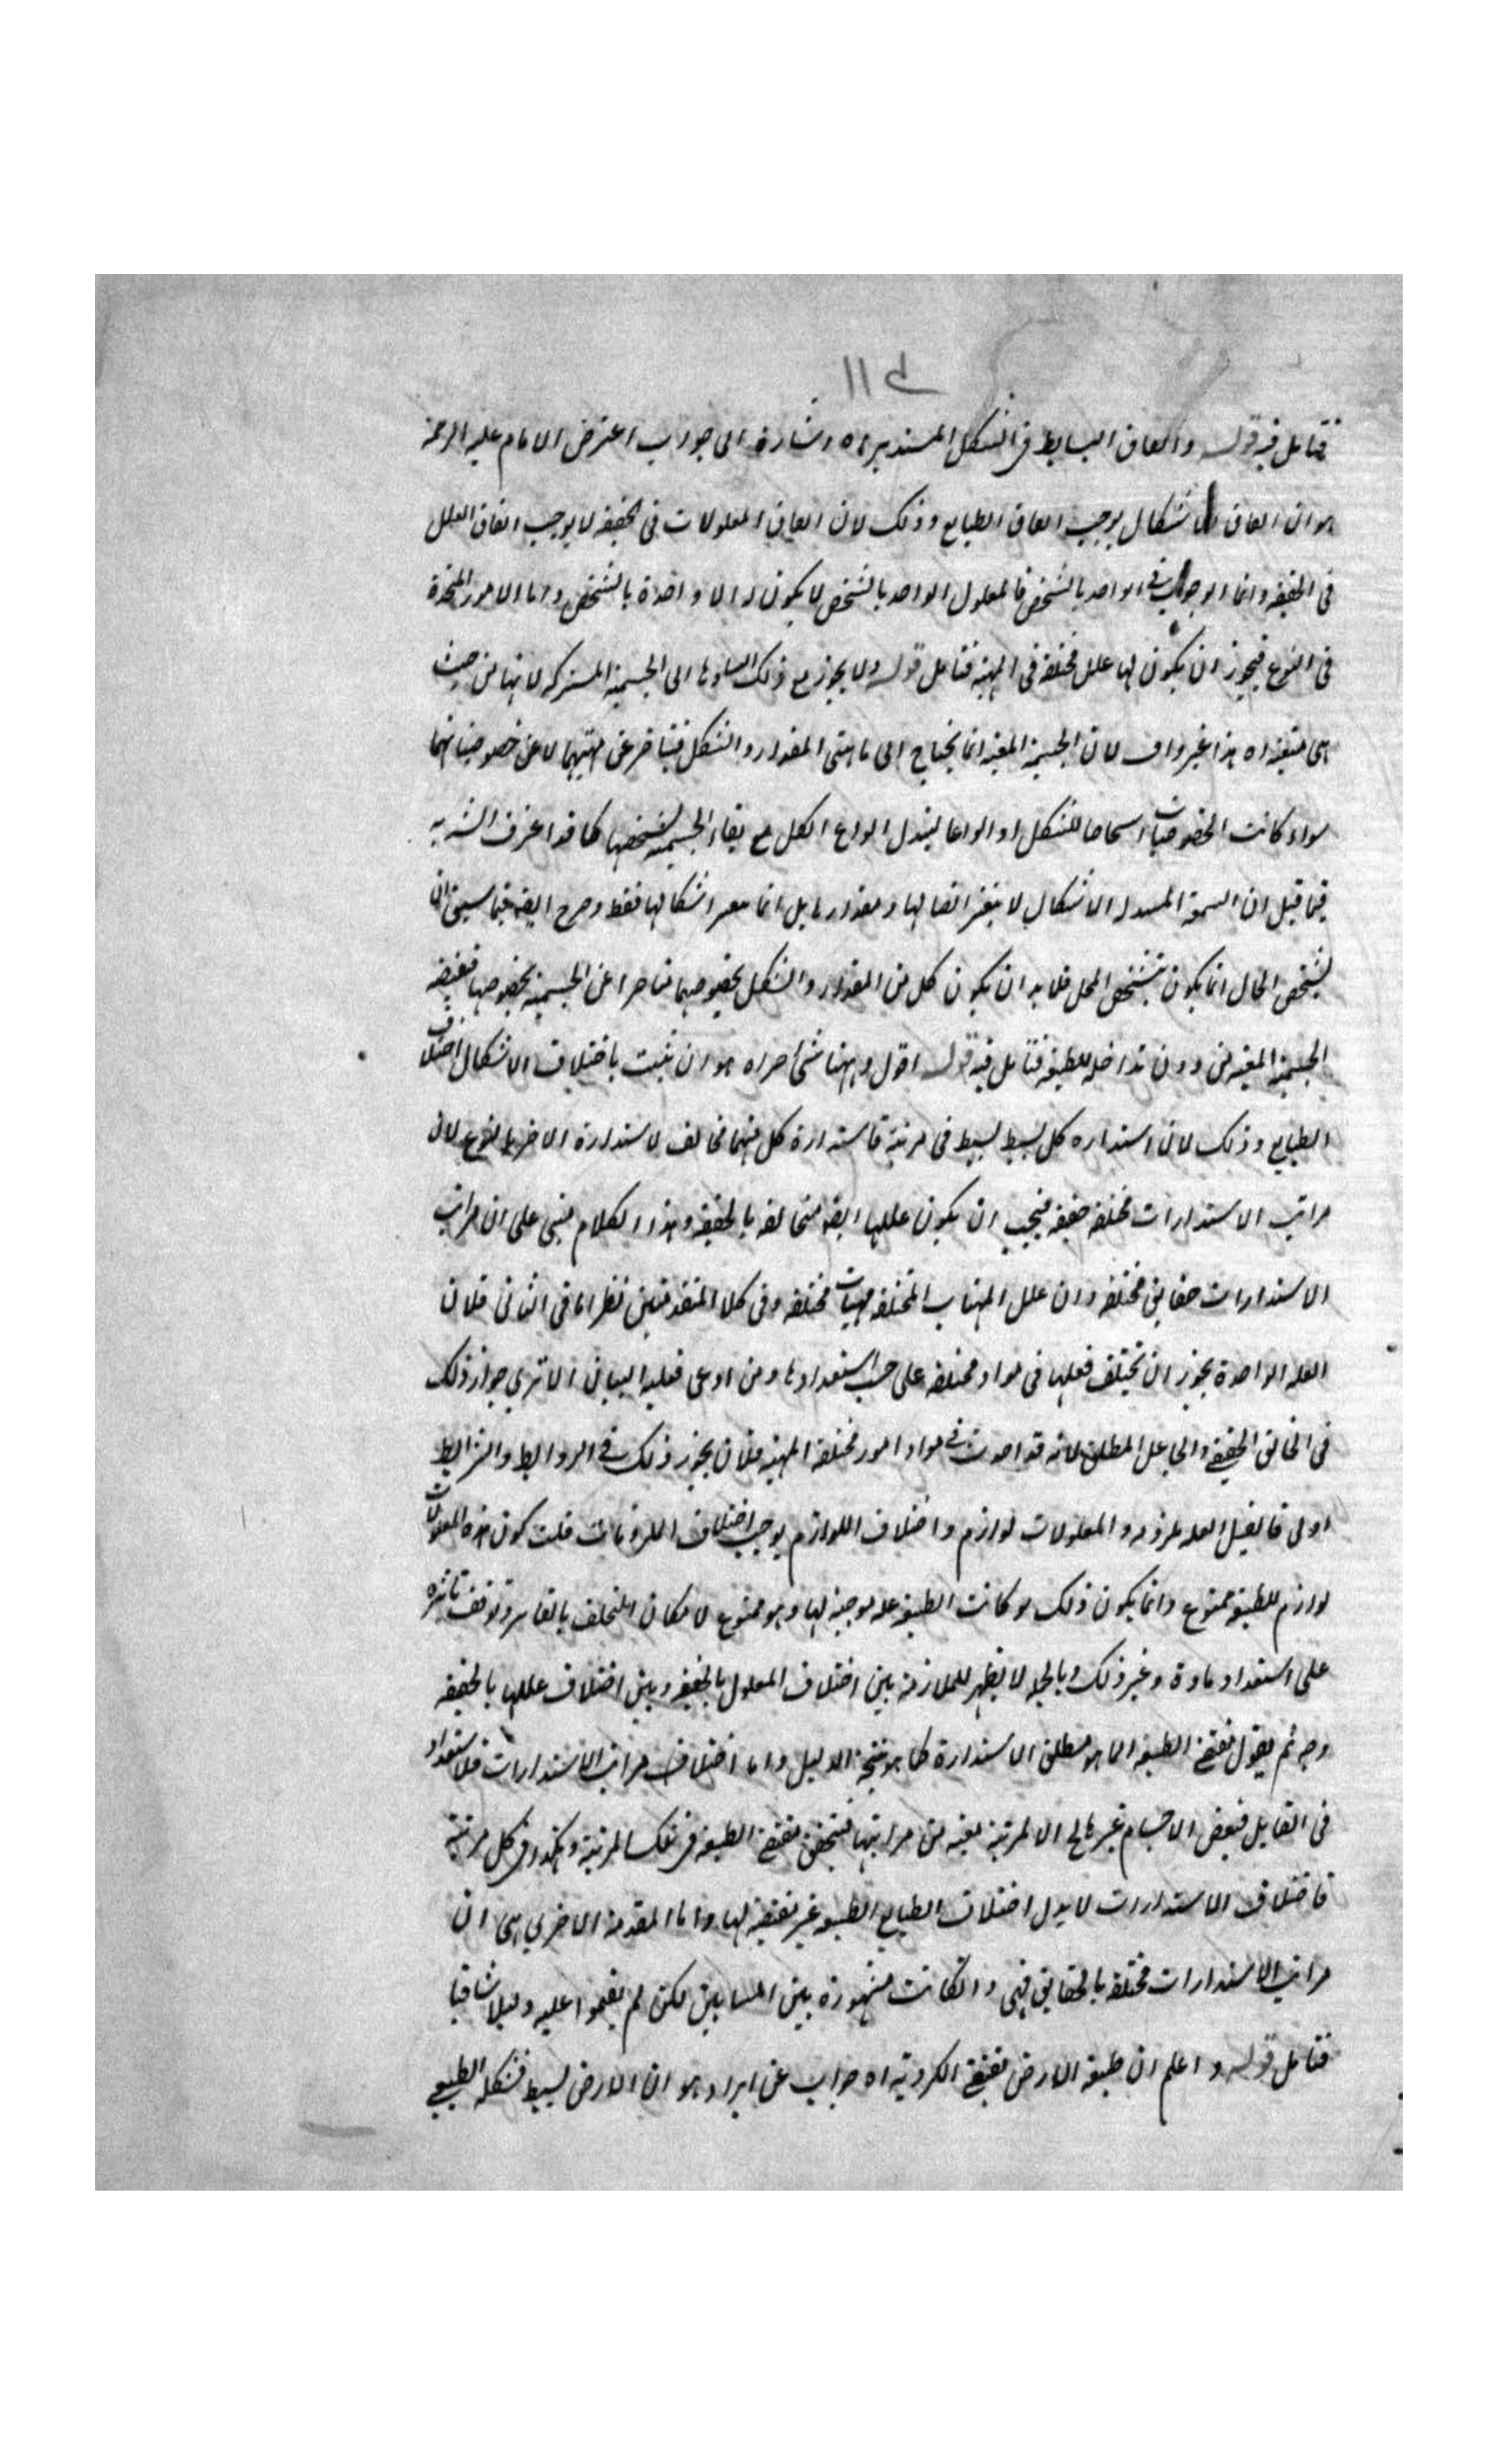 فتامل فيه قوله واتفاق البسايط في الشكل المستدير اه اشارة الى جواب اعترض الامام عليه الرحمة
هو ان اتفاق الاشكال يوجب اتفاق الطبايع وذلك لان اتفاق المعلولات في الحقيقة لا يوجب اتفاق العلل
في الحقيقة وانما الوجوب في الواحد بالشخص فالمعلول الواحد بالشخص لا يكون له الا واحدة بالشخص واما الامور المتحدة
في النوع فيجوز ان يكون لها علل مختلفة في المهية فتامل قوله ولا يجوز مع ذلك اسنادها الى الجسمية المشتركة لانها من حيث
هي متعينة اه هذا غير واف لان الجسمية المعينة انما يحتاج الى ماهيتي المقدار والشكل فيتاخر عن مهيتهما لا عن خصوصياتهما
سواء كانت الخصوصيات اشخاصا للشكل او انواعا لتبدل انواع الكل مع بقاء الجسمية بشخصها كما قد اعترف الش به
فيما قيل ان الشمعة المتبدلة الاشكال لا يتغير اتصالها ومقدارها بل انما تتغير اشكالها فقط وصرح ايضه فيما سيجئ ان
تشخص الحال انما يكون بتشخص المحل فلا بد ان يكون كل من المقدار والشكل بخصوصهما متاخرا عن الجسمية بخصوصها فيقتضيه
الجسمية المعينة من دون تداخل للطبيعة فتامل فيه قوله اقول وههنا شئ اخر اه هو ان يثبت باختلاف الاشكال اختلاف
الطبايع وذلك لان استدارة كل بسيط بسيط في مرتبة فاستدارة كل منهما مخالف لاستدارة الاخر بالنوع لان
مراتب الاستدارات مختلفة حقيقة فيجب ان يكون عللها ايضه متخالفة بالحقيقة وهذا الكلام مبني على ان مراتب
الاستدارات حقايق مختلفة وان علل المهيات المختلفة مهيات مختلفة وفي كلا المقدمتين نظر اما في الثاني فلان
العلة الواحدة يجوز ان يختلف فعلها في مواد مختلفة على حسب استعدادها ومن ادعى فعليه البيان الا ترى جواز ذلك
في الخالق الحقيقي والجاعل المطلق لانه قد احدث في مواد امور مختلفة المهية فلان يجوز ذلك في الروابط والشرايط
اولى فان قيل العلة ملزومة والمعلولات لوازم واختلاف اللوازم يوجب اختلاف الملزومات قلت كون هذه المعلولات
لوازم للطبيعة ممنوع وانما يكون ذلك لو كانت الطبيعة علة موجبة لها وهو ممنوع لامكان التخلف بالقاسر وتوقف تاثيره
على استعداد مادة وغير ذلك وبالجملة لا يظهر للملازمة بين اختلاف المعلول بالحقيقة وبين اختلاف عللها بالحقيقة
وجه ثم يقول مقتضى الطبيعة انما هو مطلق الاستدارة كما هو نتيجة الدليل واما اختلاف مراتب الاستدارات فلاستعداد
في القابل فبعض الاجسام غير صالح الا لمرتبة معينة من مراتبها فيتحقق مقتضى الطبيعة في تلك المرتبة وهكذا في كل مرتبة
فاختلاف الاستدارات لا يدل اختلاف الطبايع الطبيعة غير مقتضية لها واما المقدمة الاخرى هي ان
مراتب الاستدارات مختلفة بالحقايق فهي وان كانت مشهورة بين المشايين لكن لم يقيموا عليه دليلا شافيا
فتامل قوله واعلم ان طبيعة الارض تقتضي الكروية اه جواب عن ايراد هو ان الارض بسيط فشكله الطبيعي